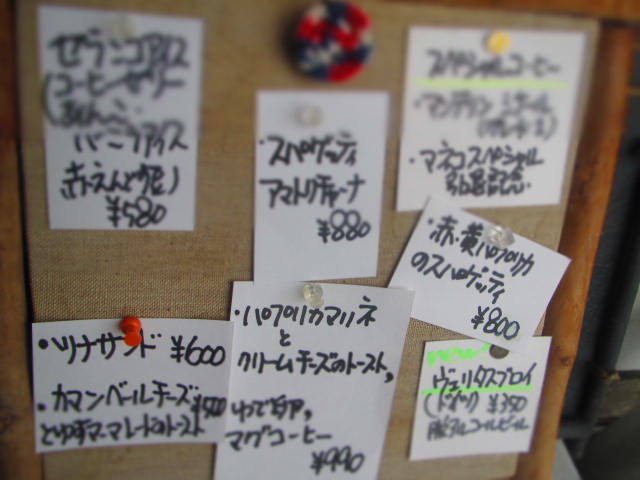 ゼランコアイス
(コーヒーゼリー
あんこ
バニラアイス
赤えんどう豆)
¥580
・スパゲッティ
アマトリチャーナ
¥880
スペシャルコーヒー
・マンデリン
・マネコスペシャル
・赤・黄パプリカ
のスパゲッティ
¥800
・ツナサンド ¥600
・カマンベールチーズ
とゆずマーマレードのトースト
・パプリカマリネ
と
クリームチーズのトースト,
ゆで卵,
マグコーヒー
¥990
ヴェリタスブロイ
(ドイツ) ¥350
脱アルコールビール